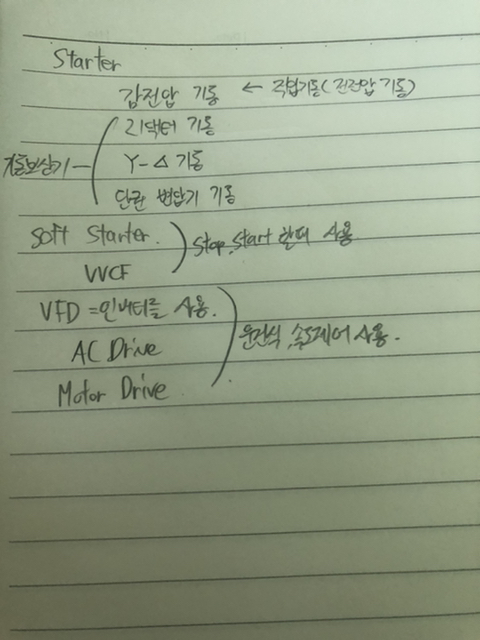 Starter
감전압 기동 ← 직입기동(전전압 기동)
리액터 기동
기동보상기 — Y-Δ 기동
단권 변압기 기동
Soft Starter. Stop, Start 할때 사용
VVCF
VFD = 인버터를 사용.
AC Drive 운전시, 속도제어 사용.
Motor Drive